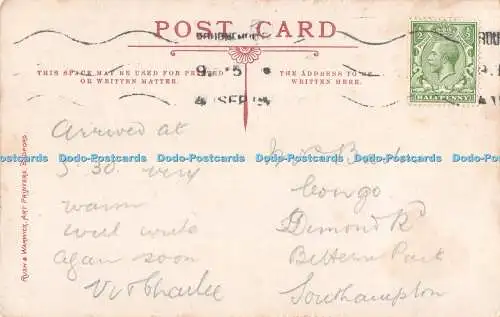 POST CARD
BOURNEMOU
9. 5
4 SEP
THIS SPACE MAY BE USED FOR PRINTED
OR WRITTEN MATTER.
THE ADDRESS TO BE
WRITTEN HERE.
HALFPENNY
RUSH & WARWICK, ART PRINTERS, BEDFORD.
Dodo-Postcards Dodo-Postcards Dodo-Postcards Dodo-Postcards Dodo-Postcards
Arrived at
5.30. very
warm
will write
again soon
Congo
Dimond Rd
Bittern Park
Southampton